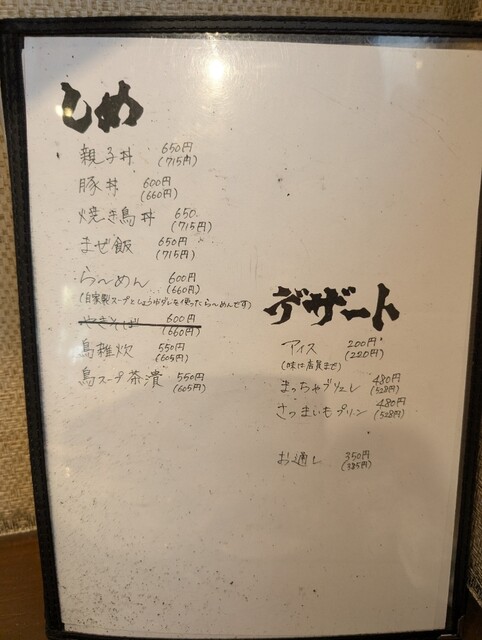 しめ
親子丼 650円
(715円)
豚丼 600円
(660円)
焼き鳥丼 650.
(715円)
まぜ飯 650円
(715円)
ら〜めん 600円
(660円)
(自家製スープとしょうゆダレを使ったら〜めんです)
やきそば 600円
(660円)
鳥雑炊 550円
(605円)
鳥スープ茶漬 550円
(605円)
デザート
アイス 200円
(220円)
(味は店員まで)
まっちゃブリュレ 480円
(528円)
さつまいもプリン 480円
(528円)
お通し 350円
(385円)